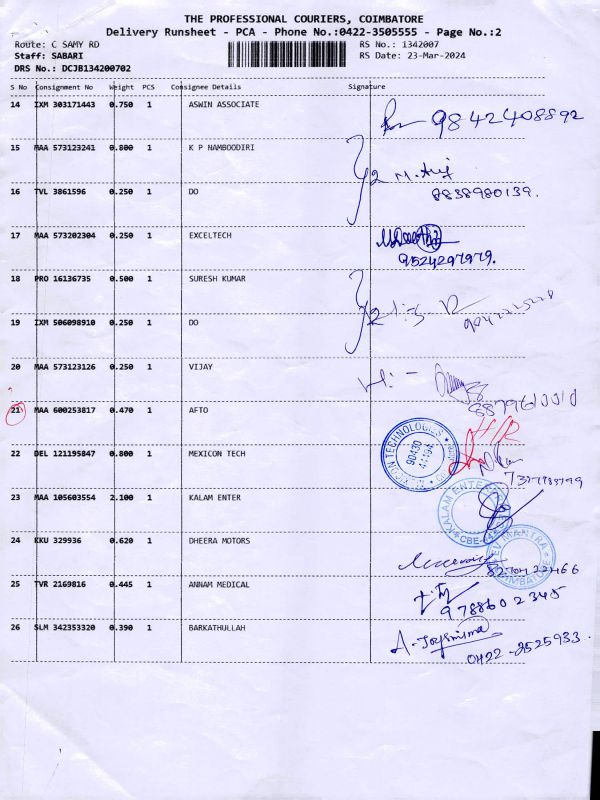 THE PROFESSIONAL COURIERS, COIMBATORE
Delivery Runsheet - PCA - Phone No.:0422-3505555 - Page No.:2
Route: C SAMY RD RS No.: 1342007
Staff: SABARI RS Date: 23-Mar-2024
DRS No.: DCJB134200702
S No Consignment No Weight PCS Consignee Details Signature
14 IXM 303171443 0.750 1 ASWIN ASSOCIATE 9842408892
15 MAA 573123241 0.800 1 K P NAMBOODIRI
16 TVL 3861596 0.250 1 DO 8838980139.
17 MAA 573202304 0.250 1 EXCELTECH 9524297979.
18 PRO 16136735 0.500 1 SURESH KUMAR
19 IXM 506098910 0.250 1 DO
20 MAA 573123126 0.250 1 VIJAY
21 MAA 600253817 0.470 1 AFTO
22 DEL 121195847 0.800 1 MEXICON TECH
23 MAA 105603554 2.100 1 KALAM ENTER
24 KKU 329936 0.620 1 DHEERA MOTORS
25 TVR 2169816 0.445 1 ANNAM MEDICAL 9788602345
26 SLM 342353320 0.390 1 BARKATHULLAH 0422-2525933.